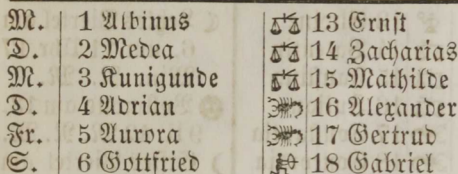 M. 1 Albinus 13 Ernst
D. 2 Medea 14 Zacharias
M. 3 Kunigunde 15 Mathilde
D. 4 Adrian 16 Alexander
Fr. 5 Aurora 17 Gertrud
S. 6 Gottfried 18 Gabriel